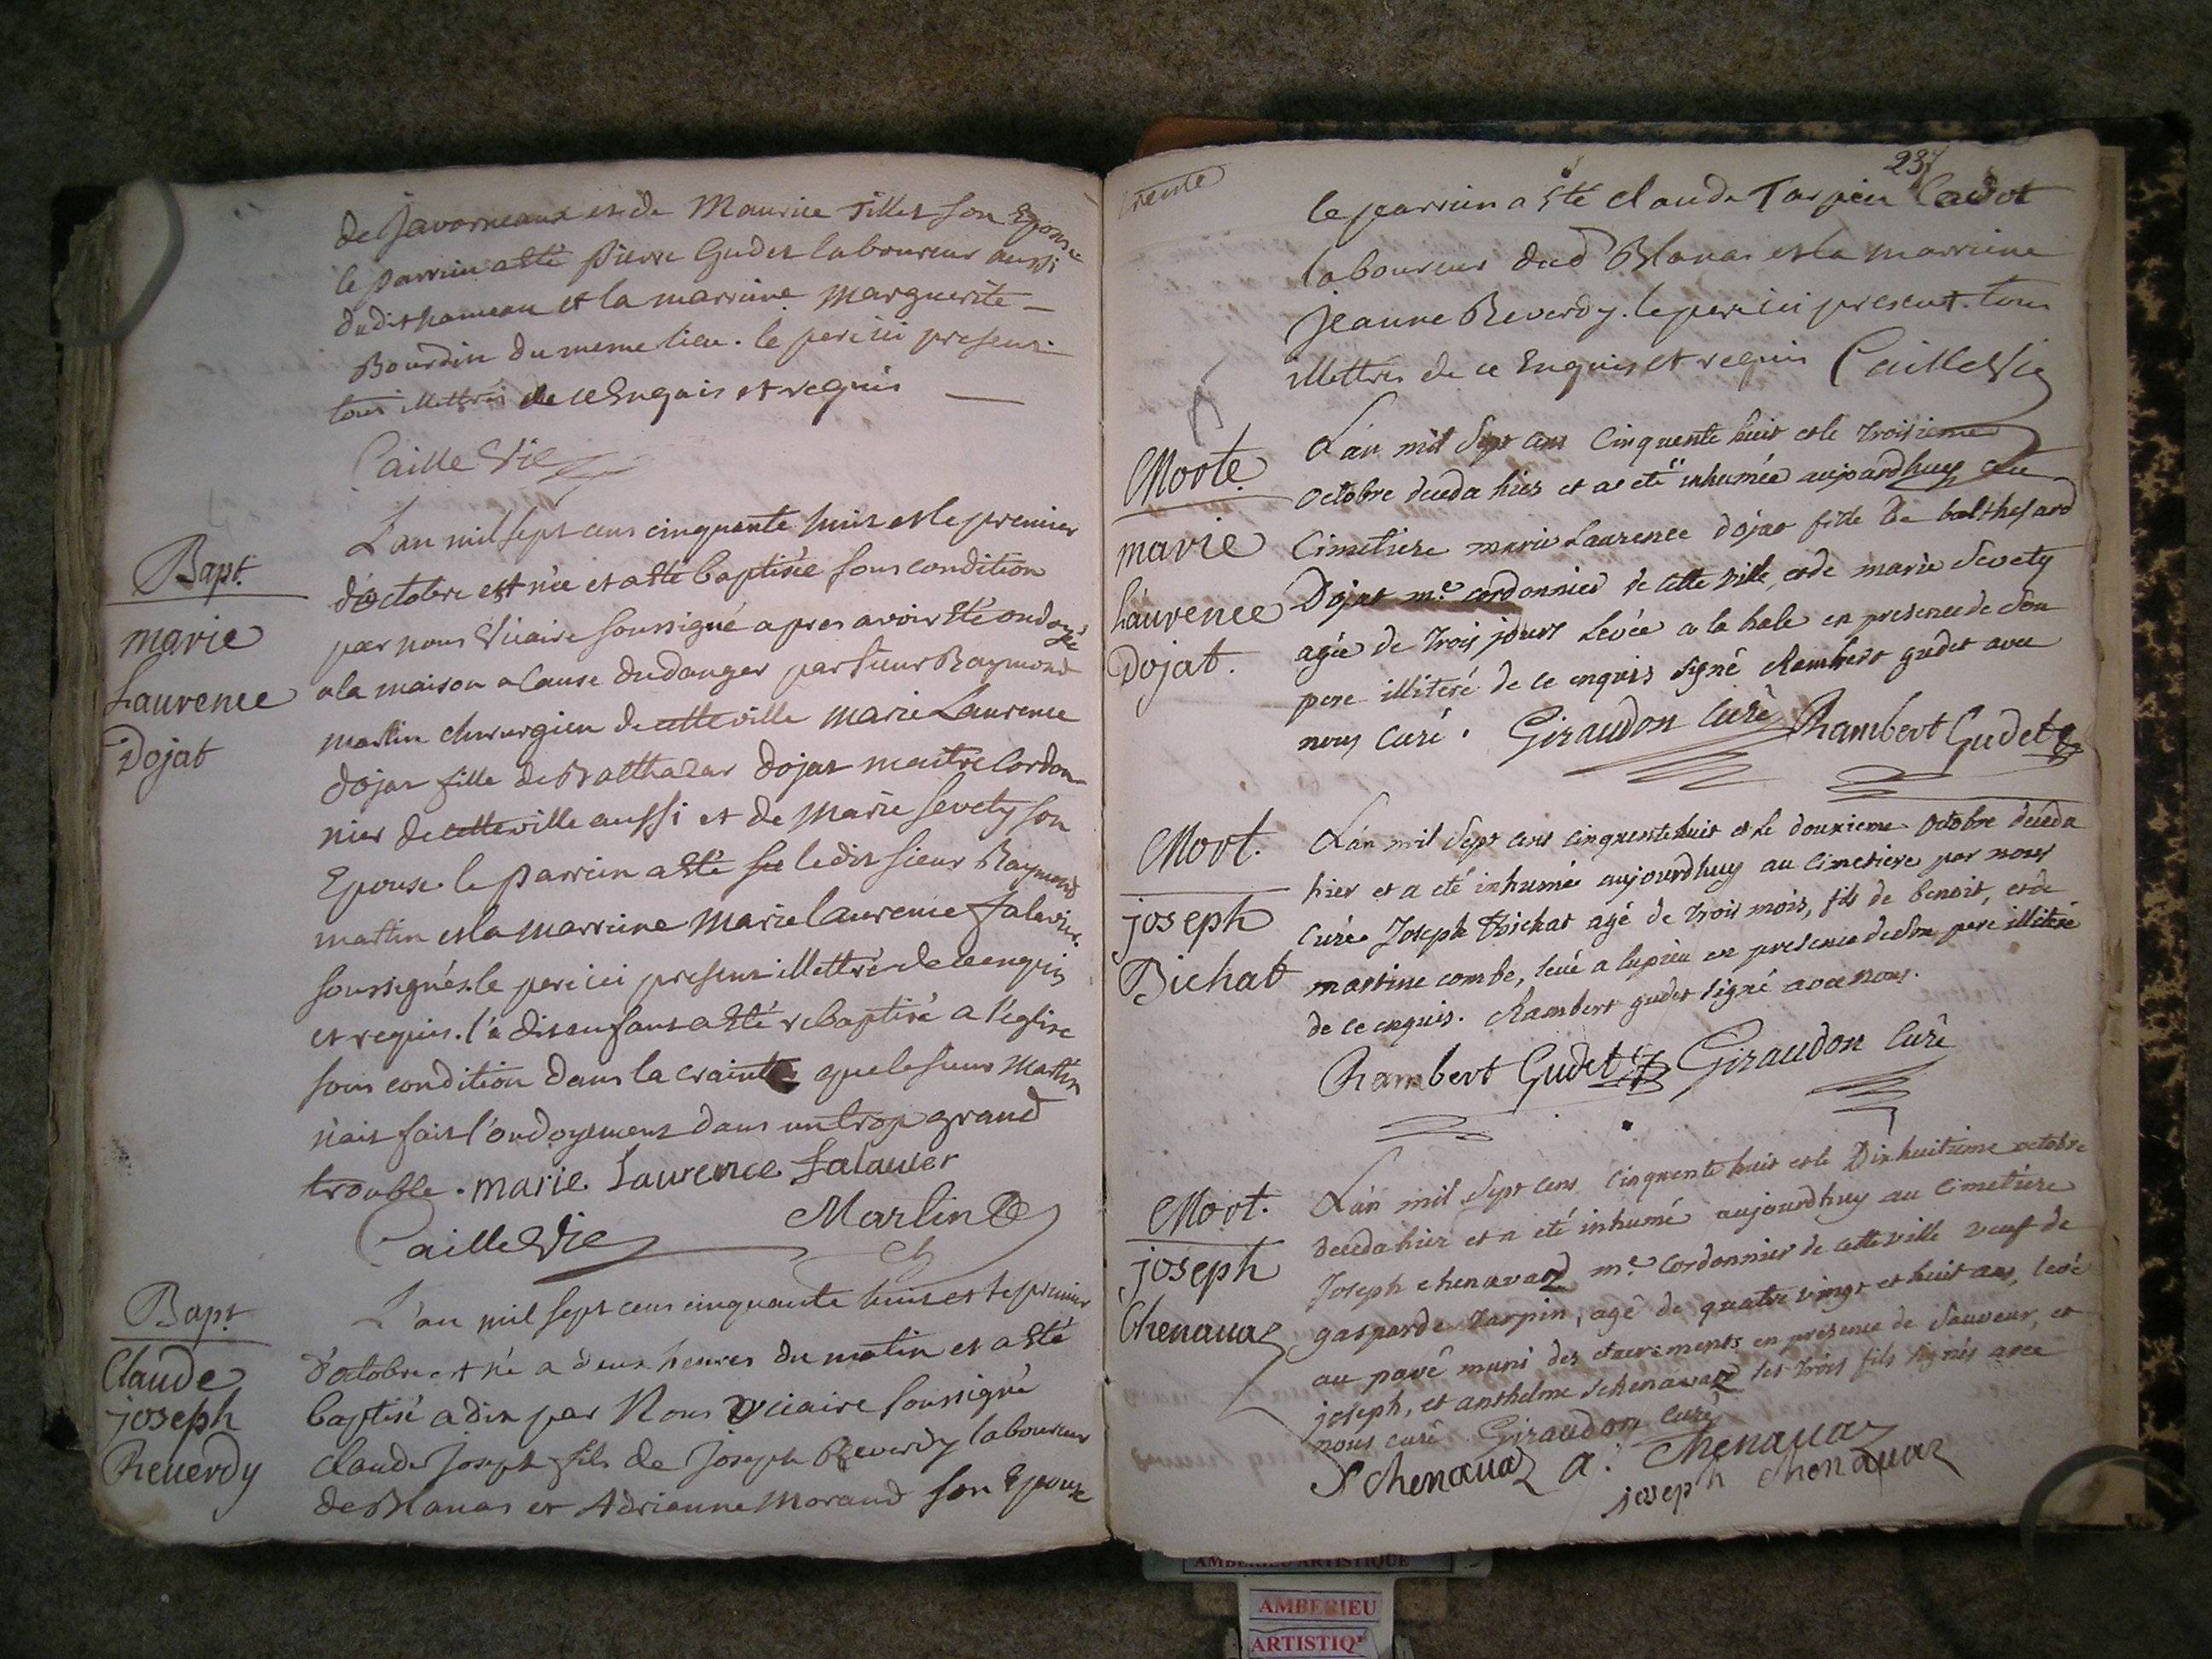 de Javorneaux et de Maurice Tillet son Epouse
le parrain a Eté pierre Gudet laboureur aussi
dudit hameau et la marrine Marguerite
Bourdin du meme lieu. le pere ici present
tous illettrés de ce Enquis et requis
Caille Vic
Bapt.
marie
Laurence
Dojat
L'an mil sept cens cinquante huit et le premier
d'octobre est née et a Eté baptisée sous condition
par nous Vicaire soussigné apres avoir Eté ondoyée
a la maison a Cause du danger par sieur Raymond
martin chirurgien de cette ville marie Laurence
dojat fille de Balthazar dojat maitre Cordon-
nier de cette ville aussi et de Marie sevety son
Epouse. le parrein a Eté le dit sieur Raymond
martin et la marrine Marie laurence falavier
soussignés. le pere ici present illettré de ce enquis
et requis. le dit enfant a Eté rebaptisé a l'église
sous condition dans la crainte que le sieur Martin
n'ait fait l'ondoyement dans un trop grand
trouble. marie Laurence falavier
Caille Vic Martin
Bapt.
Claude
joseph
Reverdy
L'an mil sept cens cinquante huit et le premier
d'octobre est né a deux heures du matin et a Eté
baptisé a dix par Nous Vicaire soussigné
Claude Joseph fils de Joseph Reverdy laboureur
de Blanas et Adrianne Morand son Epouse
trente
237
le parrein a Eté claude Tarpin Cadot
laboureur dud Blanas et la marrine
Jeanne Reverdy. le pere ici present. tous
illettrés de ce Enquis et requis Caille Vic
Morte.
marie
Laurence
Dojat.
L'an mil Sept cens Cinquente huit et le troisieme
octobre deceda hier et a eté inhumée aujourdhuy au
Cimetiere marie Laurence dojat fille de balthesard
Dojat me. cordonnier de cette ville, et de marie Sevety
agée de trois jours Levée a la hale en presence de son
pere illiteré de ce enquis signé Rambert gudet avec
nous Curé. Giraudon Curé Rambert Gudet
Mort.
joseph
Bichat
L'an mil Sept cens cinquente huit et le douzieme octobre deceda
hier et a eté inhumé aujourdhuy au cimetiere par nous
Curé Joseph Bichat agé de trois mois, fils de benoit, et de
martine combe, levé a lupieu en presence de son pere illiteré
de ce enquis. Rambert gudet signé avec nous.
Rambert Gudet Giraudon Curé
Mort.
joseph
Chenavaz
L'an mil Sept cens cinquente huit et le Dixhuitieme octobre
deceda hier et a eté inhumé aujourdhuy au cimetiere
Joseph chenavaz me. cordonnier de cette ville veuf de
gasparde tarpin, agé de quatre vingt et huit ans, levé
au pavé muni des sacrements en presence de Sauveur, et
joseph, et anthelme chenavaz ses trois fils signés avec
nous curé Giraudon Curé
S chenavaz a: Chenavaz
joseph chenavaz
AMBERIEU ARTISTIQUE
AMBERIEU
ARTISTIQ